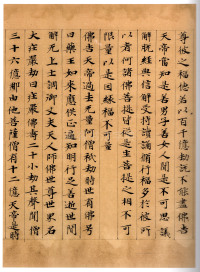 尊彼之福德若以百千億劫說不能盡佛告
天帝當知是善男子善女人聞是不可思議
解脫經典信解受持讀誦脩行福多於彼所
以者何諸佛菩提皆從是生菩提之相不可
限量以是因緣福不可量
佛告天帝過去无量阿僧祇劫時世有佛号
曰藥王如來應供正遍知明行足善逝世間
解无上士調御丈夫天人師佛世尊世界名
大莊嚴劫曰莊嚴佛壽二十小劫其聲聞僧
三十六億那由他菩薩僧有十二億天帝是時